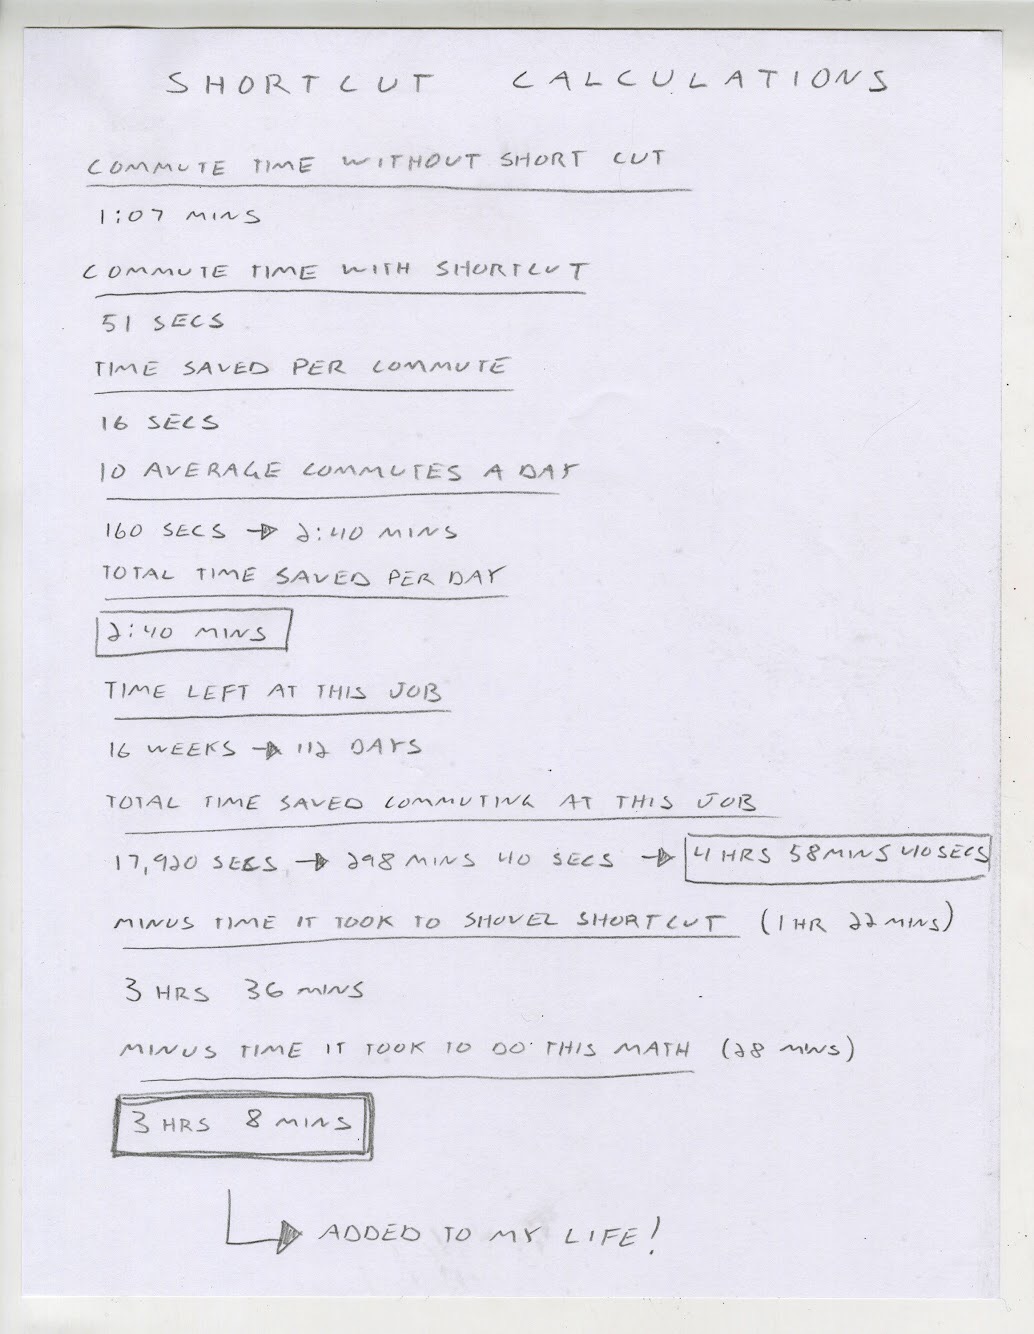 SHORTCUT CALCULATIONS
COMMUTE TIME WITHOUT SHORT CUT
1:07 MINS
COMMUTE TIME WITH SHORTCUT
51 SECS
TIME SAVED PER COMMUTE
16 SECS
10 AVERAGE COMMUTES A DAY
160 SECS → 2:40 MINS
TOTAL TIME SAVED PER DAY
2:40 MINS
TIME LEFT AT THIS JOB
16 WEEKS → 112 DAYS
TOTAL TIME SAVED COMMUTING AT THIS JOB
17,920 SECS → 298 MINS 40 SECS → 4 HRS 58 MINS 40 SECS
MINUS TIME IT TOOK TO SHOVEL SHORTCUT (1 HR 22 MINS)
3 HRS 36 MINS
MINUS TIME IT TOOK TO DO THIS MATH (28 MINS)
3 HRS 8 MINS
→ ADDED TO MY LIFE!